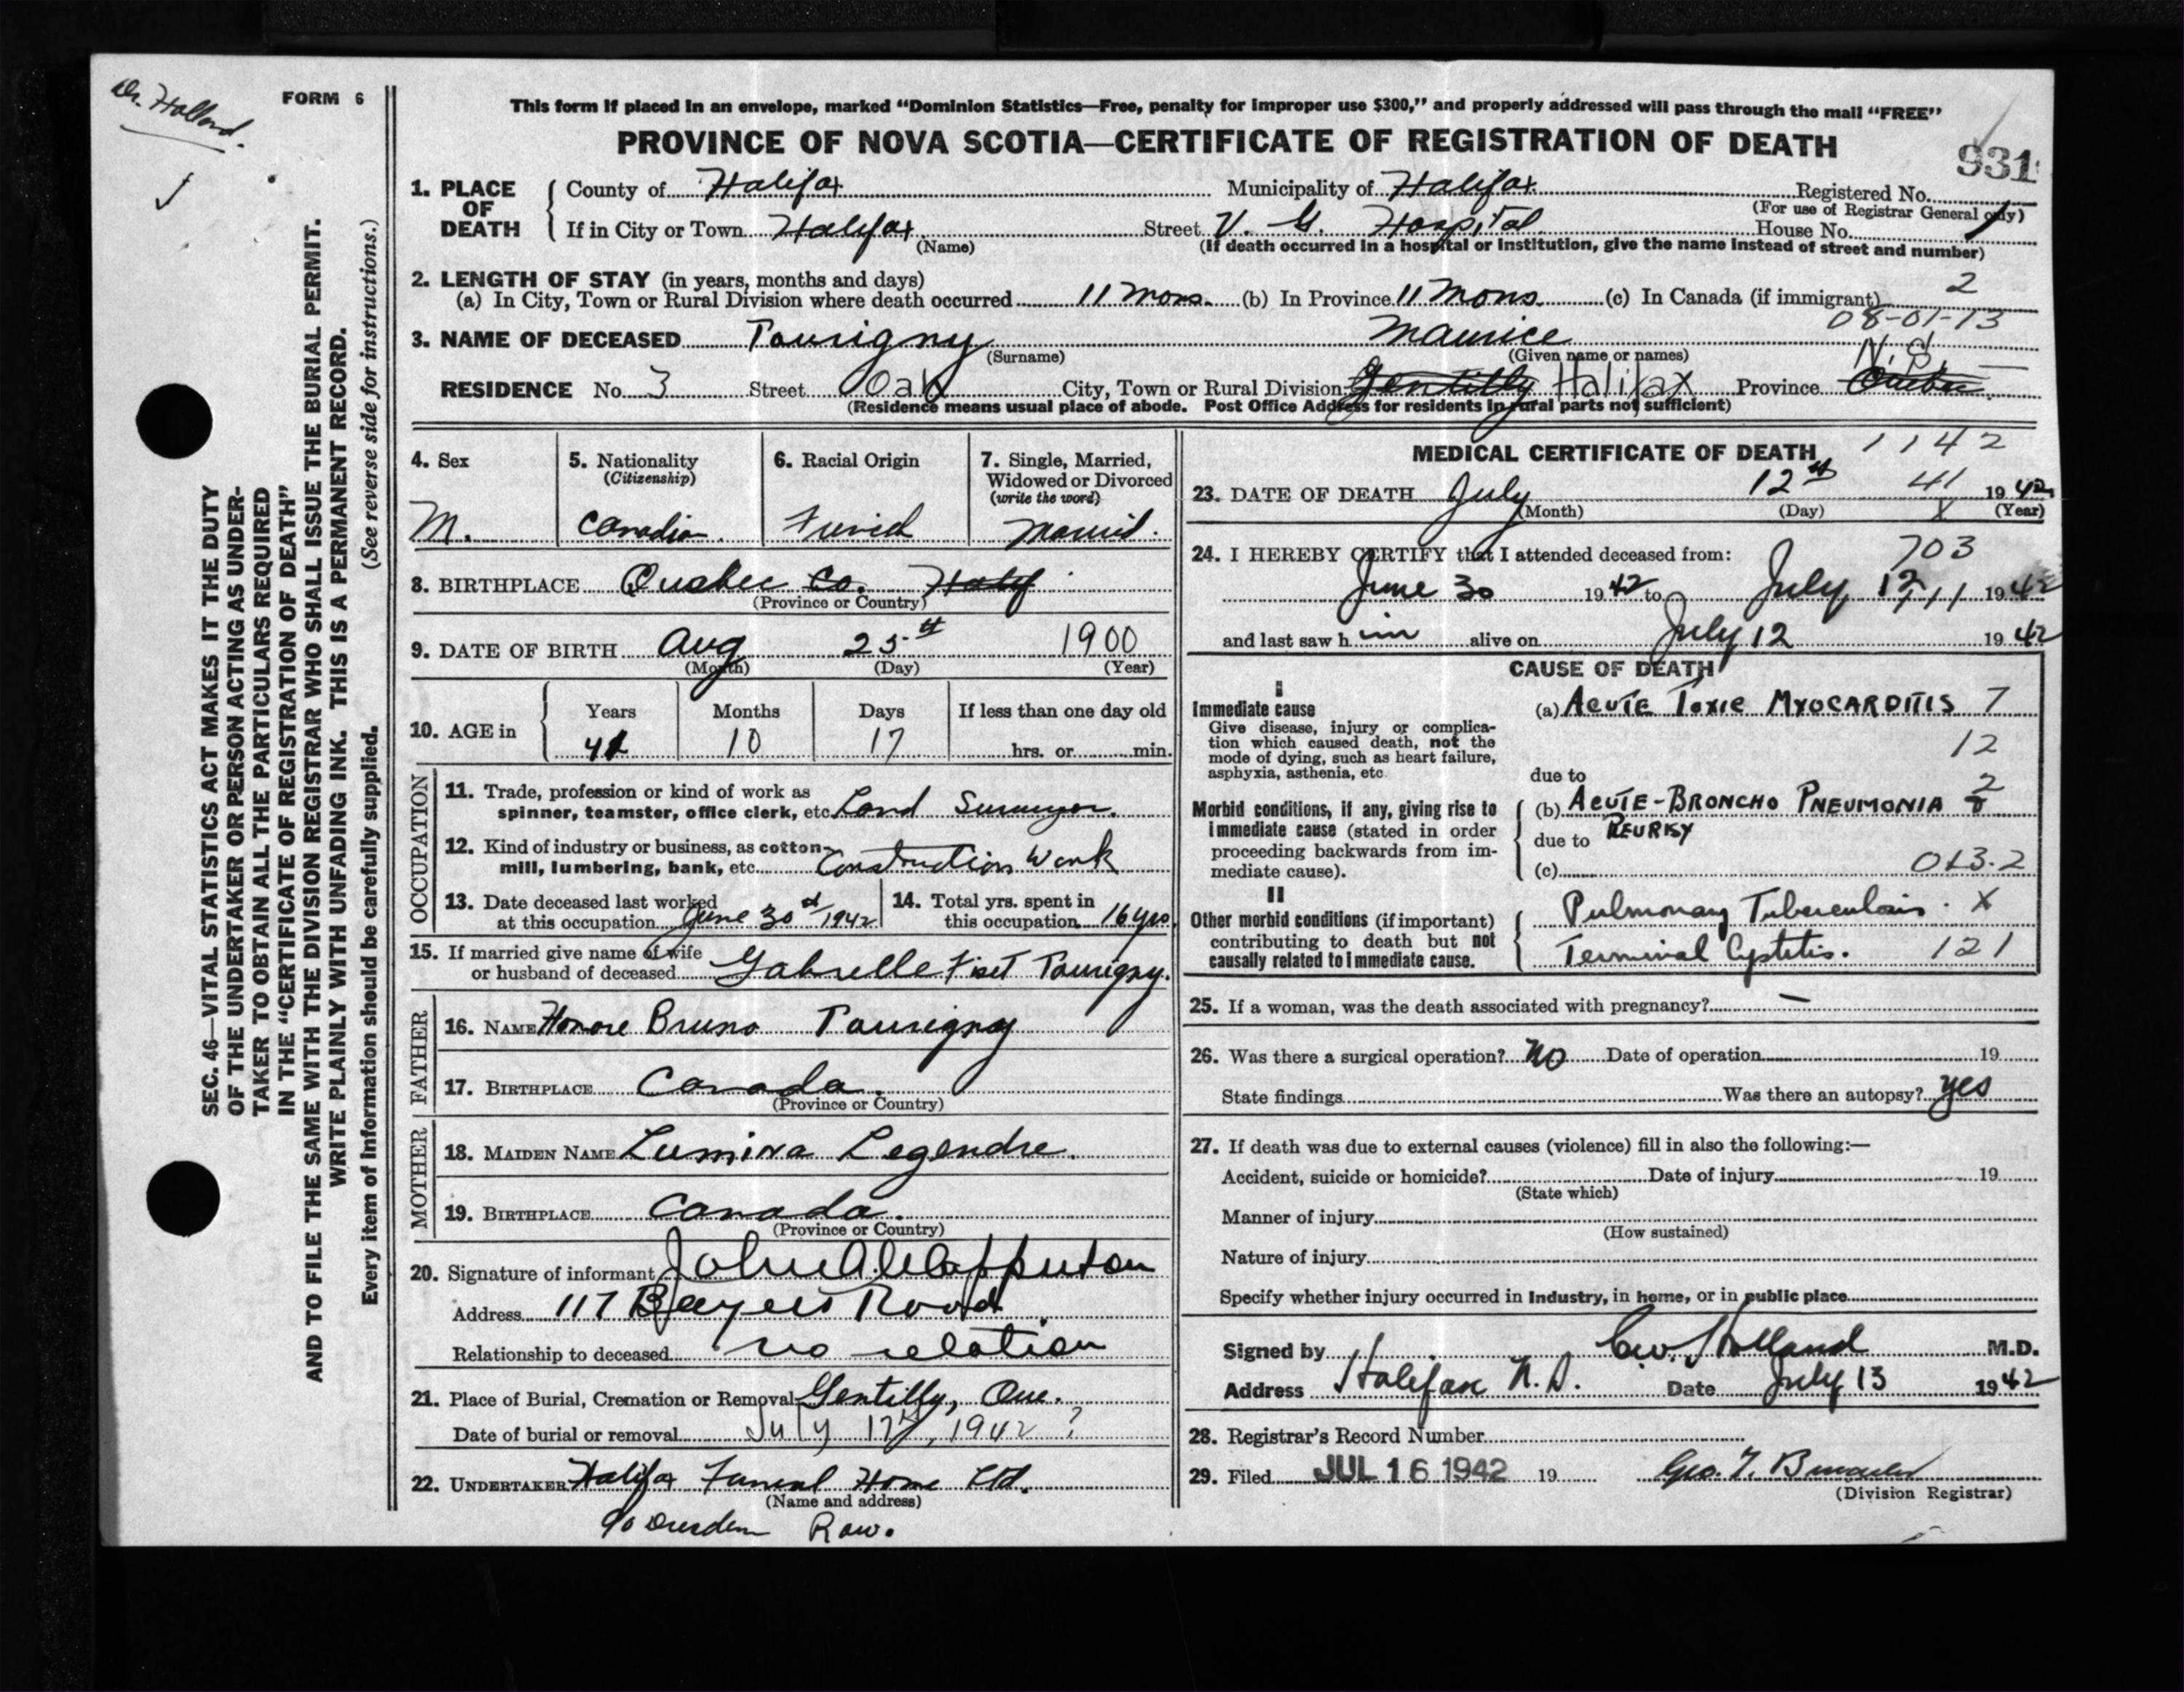 Dr. Holland.
FORM 6
This form if placed in an envelope, marked “Dominion Statistics—Free, penalty for improper use $300,” and properly addressed will pass through the mail “FREE”
PROVINCE OF NOVA SCOTIA—CERTIFICATE OF REGISTRATION OF DEATH
931
SEC. 46—VITAL STATISTICS ACT MAKES IT THE DUTY
OF THE UNDERTAKER OR PERSON ACTING AS UNDER-
TAKER TO OBTAIN ALL THE PARTICULARS REQUIRED
IN THE “CERTIFICATE OF REGISTRATION OF DEATH”
AND TO FILE THE SAME WITH THE DIVISION REGISTRAR WHO SHALL ISSUE THE BURIAL PERMIT.
WRITE PLAINLY WITH UNFADING INK. THIS IS A PERMANENT RECORD.
Every item of Information should be carefully supplied. (See reverse side for instructions.)
1. PLACE OF DEATH
County of Halifax Municipality of Halifax Registered No.
(For use of Registrar General only)
If in City or Town Halifax Street V. G. Hospital House No.
(Name) (If death occurred in a hospital or institution, give the name instead of street and number)
2. LENGTH OF STAY (in years, months and days)
(a) In City, Town or Rural Division where death occurred 11 mons. (b) In Province 11 mons. (c) In Canada (if immigrant) 2
08-01-13
3. NAME OF DECEASED Tourigny Maurice
(Surname) (Given name or names)
N.S.
RESIDENCE No. 3 Street Oak City, Town or Rural Division Gentilly Halifax Province Quebec
(Residence means usual place of abode. Post Office Address for residents in rural parts not sufficient)
4. Sex
M.
5. Nationality
(Citizenship)
Canadian.
6. Racial Origin
French
7. Single, Married,
Widowed or Divorced
(write the word)
Married.
8. BIRTHPLACE Quebec Co.
(Province or Country)
9. DATE OF BIRTH Aug 25th 1900
(Month) (Day) (Year)
10. AGE in
Years Months Days If less than one day old
41 10 17 hrs. or min.
OCCUPATION
11. Trade, profession or kind of work as
spinner, teamster, office clerk, etc. Land Surveyor.
12. Kind of industry or business, as cotton-
mill, lumbering, bank, etc. Construction Work
13. Date deceased last worked
at this occupation June 30th 1942
14. Total yrs. spent in
this occupation 16 yrs.
15. If married give name of wife
or husband of deceased Gabrielle Fiset Tourigny.
FATHER
16. NAME Honore Bruno Tourigny
17. BIRTHPLACE Canada.
(Province or Country)
MOTHER
18. MAIDEN NAME Lumina Legendre.
19. BIRTHPLACE Canada.
(Province or Country)
20. Signature of informant John A.
Address 117 Bayers Road
Relationship to deceased no relation
21. Place of Burial, Cremation or Removal Gentilly, Que.
Date of burial or removal July 17, 1942 ?
22. UNDERTAKER Halifax Funeral Home Ltd.
(Name and address)
90 Dresden Row.
MEDICAL CERTIFICATE OF DEATH 1142
23. DATE OF DEATH July 12th 41 1942
(Month) (Day) X (Year)
24. I HEREBY CERTIFY that I attended deceased from: 703
June 30 1942 to July 12 1942
and last saw him alive on July 12 1942
CAUSE OF DEATH
I
Immediate cause
Give disease, injury or complica-
tion which caused death, not the
mode of dying, such as heart failure,
asphyxia, asthenia, etc.
(a) ACUTE TOXIC MYOCARDITIS 7
12
due to
Morbid conditions, if any, giving rise to
immediate cause (stated in order
proceeding backwards from im-
mediate cause).
2
(b) ACUTE-BRONCHO PNEUMONIA
due to PLEURISY
(c) 013.2
II
Other morbid conditions (if important)
contributing to death but not
causally related to immediate cause.
Pulmonary Tuberculosis. X
Terminal Cystitis. 121
25. If a woman, was the death associated with pregnancy? —
26. Was there a surgical operation? No Date of operation 19
State findings Was there an autopsy? yes
27. If death was due to external causes (violence) fill in also the following:—
Accident, suicide or homicide? Date of injury 19
(State which)
Manner of injury
(How sustained)
Nature of injury
Specify whether injury occurred in industry, in home, or in public place
Signed by C.W. Holland M.D.
Address Halifax N.S. Date July 13 1942
28. Registrar’s Record Number
29. Filed JUL 16 1942 19 Geo. T.
(Division Registrar)